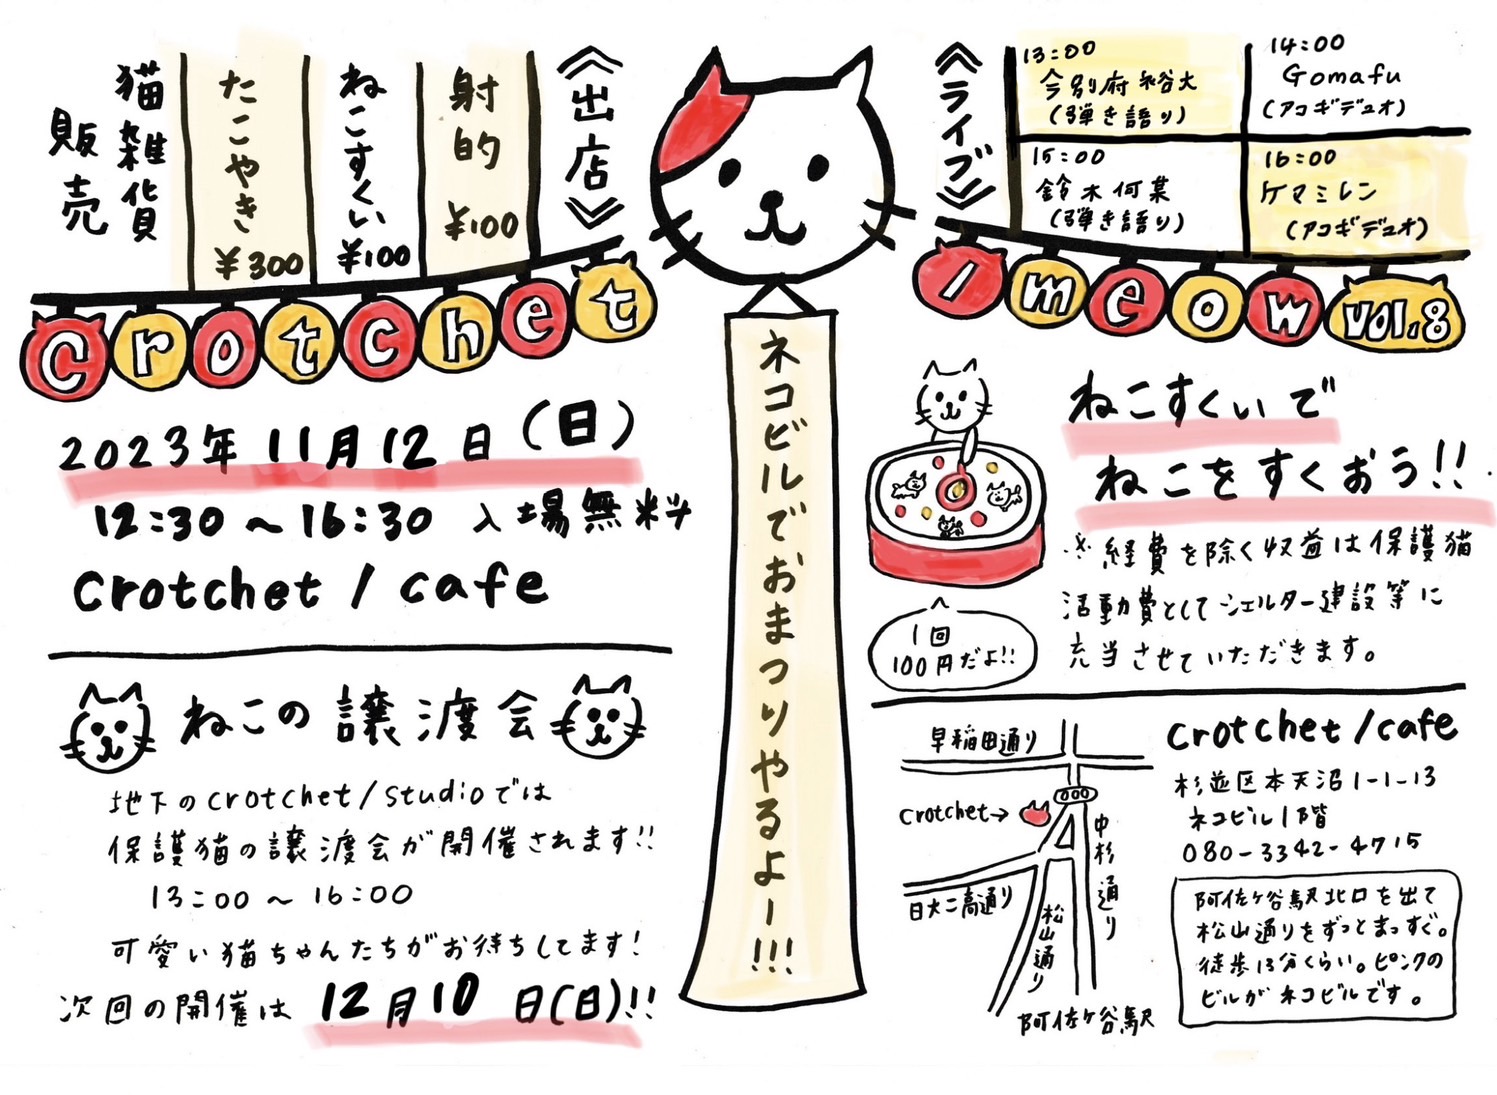 《出店》
射的 ¥100
ねこすくい ¥100
たこやき ¥300
猫雑貨
販売
crotchet
《ライブ》
13:00
今別府裕大
(弾き語り)
14:00
Gomafu
(アコギデュオ)
15:00
鈴木何某
(弾き語り)
16:00
ケマミレン
(アコギデュオ)
/meow vol.8
ネコビルでおまつりやるよー!!!
2023年11月12日(日)
12:30～16:30 入場無料
crotchet / cafe
ねこの譲渡会
地下のcrotchet/studioでは
保護猫の譲渡会が開催されます!!
13:00～16:00
可愛い猫ちゃんたちがお待ちしてます!
次回の開催は 12月10日(日)!!
ねこすくいで
ねこをすくおう!!
※経費を除く収益は保護猫
活動費としてシェルター建設等に
充当させていただきます。
1回
100円だよ!!
早稲田通り
crotchet→
中杉通り
日大二高通り
松山通り
阿佐ケ谷駅
crotchet/cafe
杉並区本天沼1-1-13
ネコビル1階
080-3342-4715
阿佐ケ谷駅北口を出て
松山通りをずっとまっすぐ。
徒歩13分くらい。ピンクの
ビルがネコビルです。